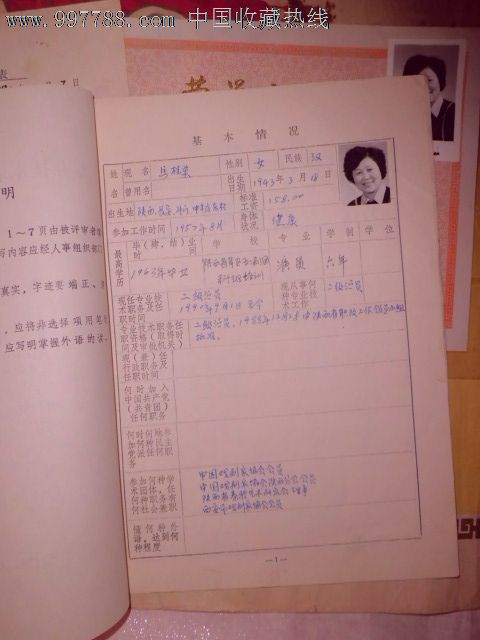 www.997788.com 中国收藏热线
表
明
1～7页由被评审者填
写内容应经人事组织部门
真实，字迹要端正、
，应将非选择项用笔
应写明掌握外语的语
基本情况
姓名 现名 马桂荣 性别 女 民族 汉
曾用名 出生日期 1943年3月18日
出生地 陕西 标准工资 158.00
参加工作时间 1957年8月 身体状况 健康
最高学历 毕（肄、结）业时间 学校 专业 学制 学位
1963年毕业 演员 六年
现任专业技术职务及任职时间 二级演员 现从事何种专业技术工作 二级演员
专业技术职务任职资格（取得时间及审批机关） 二级演员、1988年12月
批准。
现（兼）任行政职务及任职时间
何时加入中国共产党（共青团）任何职务
何时何地参加何种民主党派任何职务
参加何种学术团体、任何种职务有何社会兼职
中国戏剧家协会会员
中国戏剧家协会陕西分会会员
陕西省表演艺术研究会理事
西安市戏剧家协会会员
懂何种外语，达到何种程度
—1—